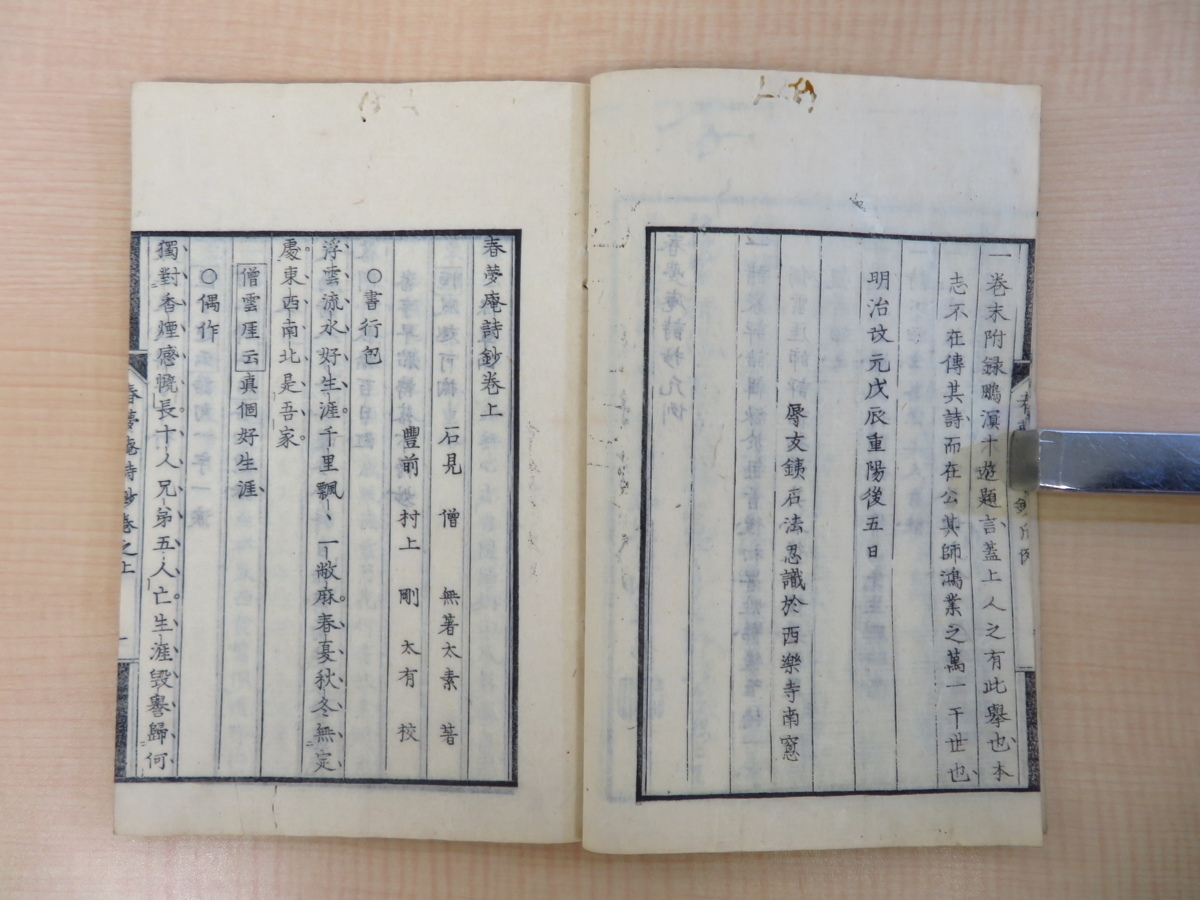 一卷末附録鵬溟十遊題言蓋上人之有此擧也本
志不在傳其詩而在公其師鴻業之萬一于世也
明治改元戊辰重陽後五日
辱友鐵石法忍識於西樂寺南窓
春夢庵詩鈔卷上
石見 僧 無著太素 著
豐前 村上 剛 太有 校
○書行包
浮雲流水好生涯千里飄〻一敝麻春夏秋冬無定
處東西南北是吾家
僧雲厓云真個好生涯
○偶作
獨對香煙感慨長十人兄弟五人亡生涯毀譽歸何
春夢庵詩鈔卷之上 一